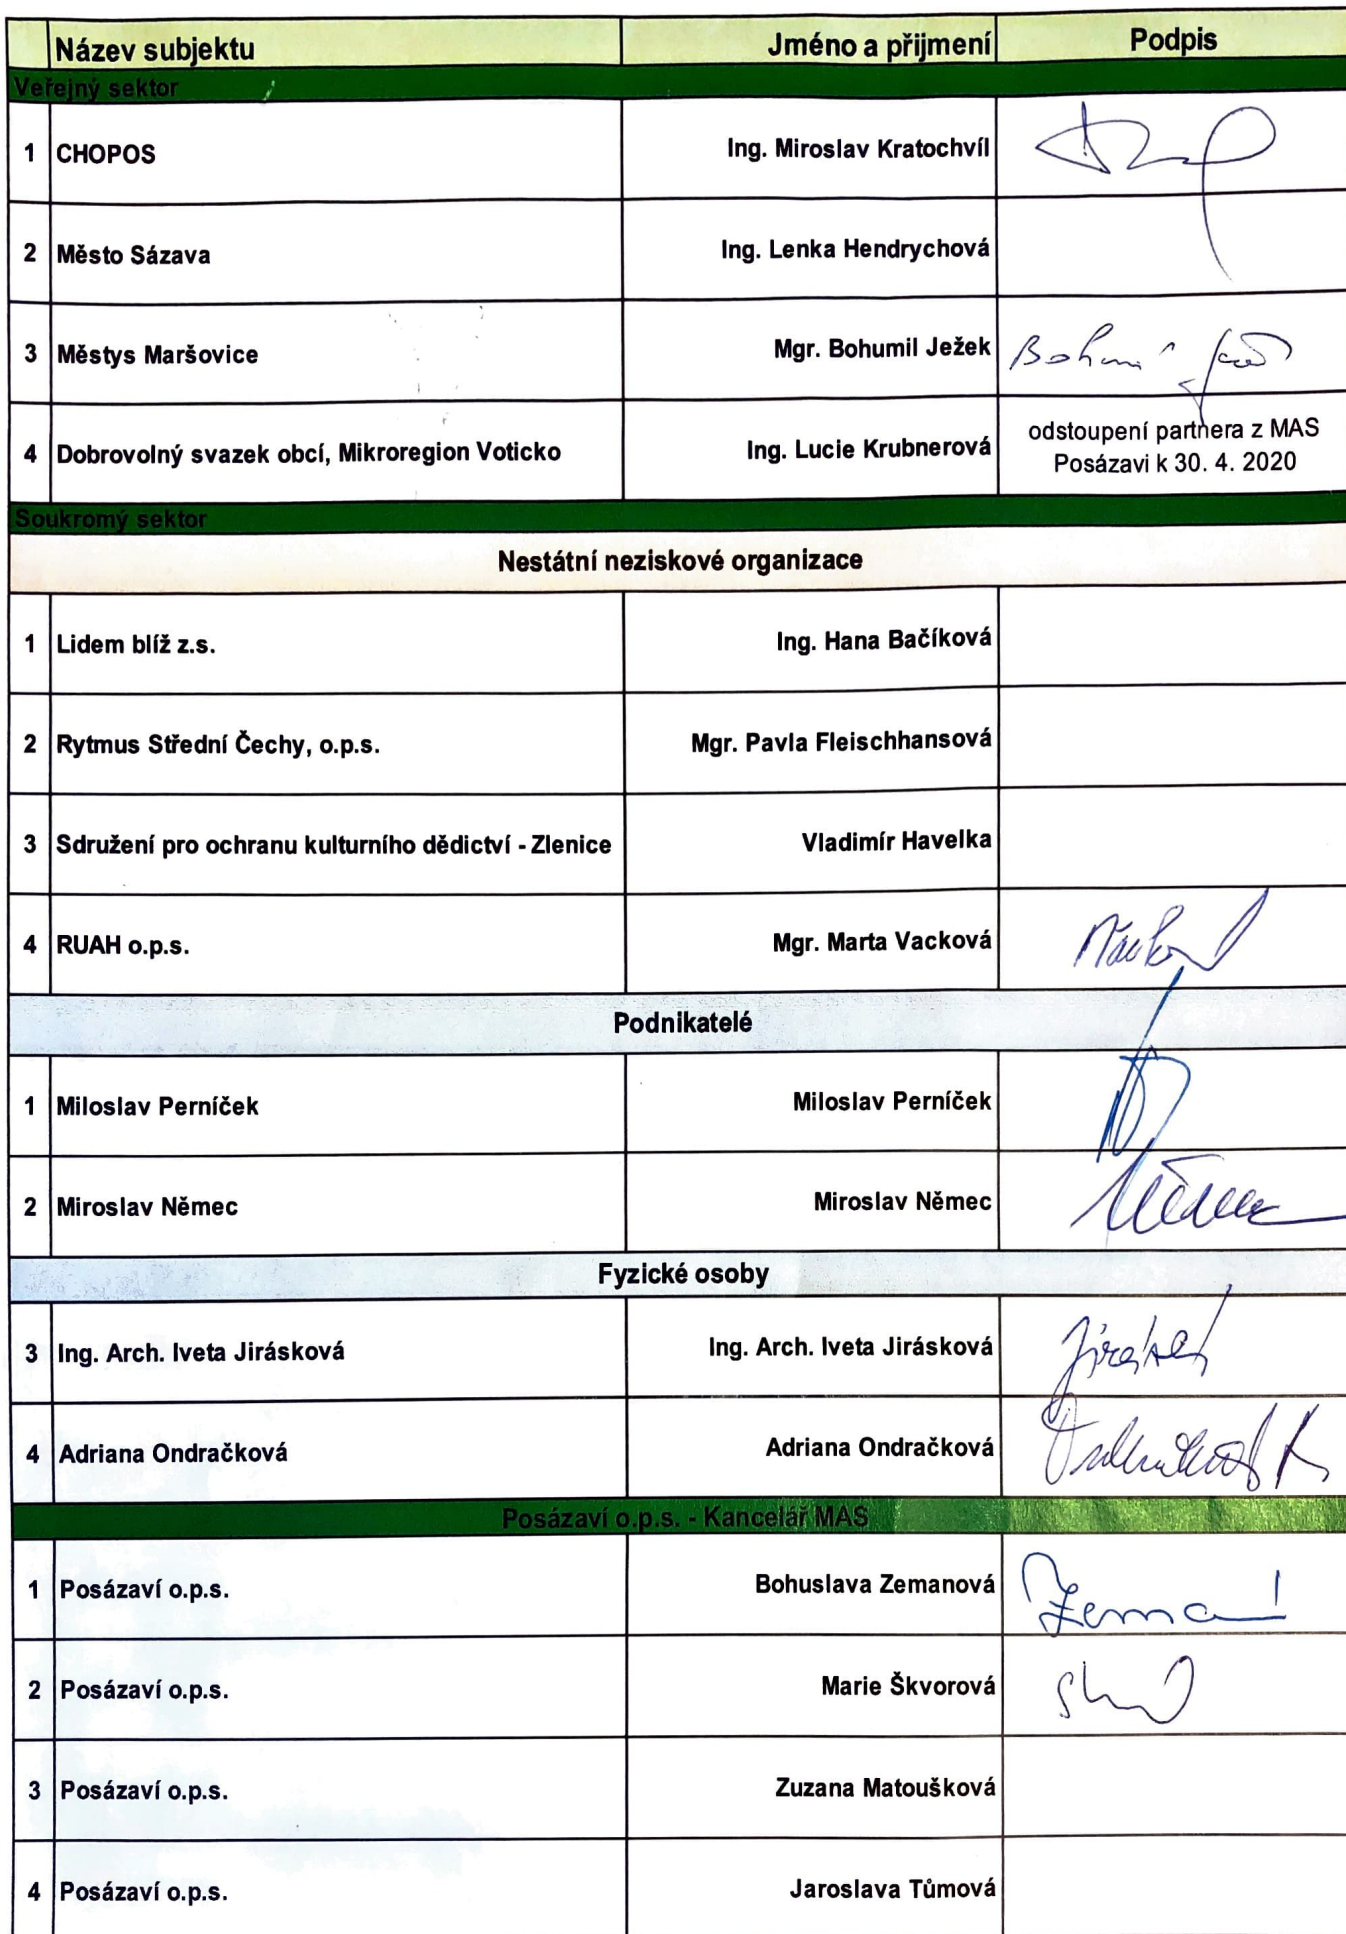 Název subjektu Jméno a přijmení Podpis
Veřejný sektor
1 CHOPOS Ing. Miroslav Kratochvíl
2 Město Sázava Ing. Lenka Hendrychová
3 Městys Maršovice Mgr. Bohumil Ježek
4 Dobrovolný svazek obcí, Mikroregion Voticko Ing. Lucie Krubnerová odstoupení partnera z MAS
Posázavi k 30. 4. 2020
Soukromý sektor
Nestátní neziskové organizace
1 Lidem blíž z.s. Ing. Hana Bačíková
2 Rytmus Střední Čechy, o.p.s. Mgr. Pavla Fleischhansová
3 Sdružení pro ochranu kulturního dědictví - Zlenice Vladimír Havelka
4 RUAH o.p.s. Mgr. Marta Vacková
Podnikatelé
1 Miloslav Perníček Miloslav Perníček
2 Miroslav Němec Miroslav Němec
Fyzické osoby
3 Ing. Arch. Iveta Jirásková Ing. Arch. Iveta Jirásková
4 Adriana Ondračková Adriana Ondračková
Posázaví o.p.s. - Kancelář MAS
1 Posázaví o.p.s. Bohuslava Zemanová
2 Posázaví o.p.s. Marie Škvorová
3 Posázaví o.p.s. Zuzana Matoušková
4 Posázaví o.p.s. Jaroslava Tůmová